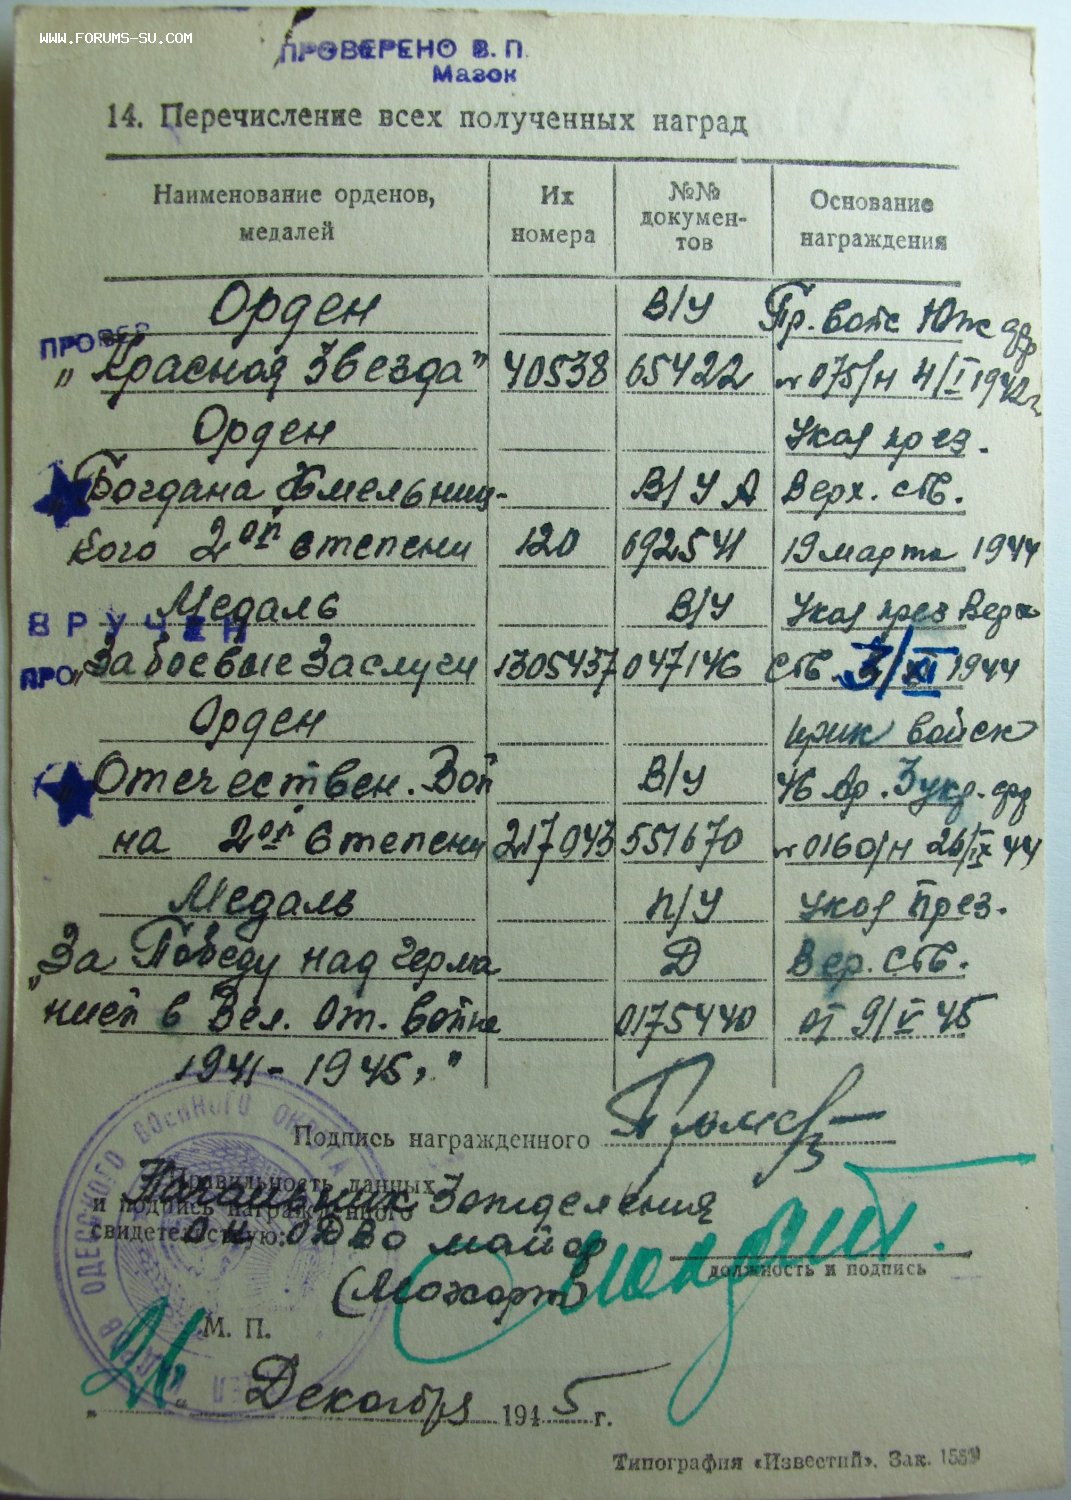 WWW.FORUMS-SU.COM
ПРОВЕРЕНО В. П.
Мазок
14. Перечисление всех полученных наград
Наименование орденов, медалей Их номера №№ документов Основание награждения
Орден В/У Пр. войс Юж фр
ПРОВЕР
"Красная Звезда" 40538 65422 № 075/н 4/I 1942г
Орден Указ през.
Богдана Хмельниц- В/У А Верх. СТВ.
кого 2ой степени 120 692541 19 марта 1944
Медаль В/У Указ през Верх
ВРУЧЕН
ПРО
"За боевые Заслуги 1305437 047146 СТВ. 3/XI 1944
Орден прик войск
Отечествен. Вой В/У 46 Ар. 3 укр. фр
на 2ой степени 217043 551670 № 0160/н 26/IX 44
Медаль П/У Указ През.
"За Победу над Герма Д Вер. СТВ.
нией в Вел. От. войне 0175440 от 9/V 45
1941-1945."
Подпись награжденного
Правильность данных
и подпись награжденного
свидетельствую:
Начальник 3 отделения
ОК ОДВО майор
(Можарт)
должность и подпись
ОДЕССКОГО ВОЕННОГО ОКРУГА
М. П.
"26" Декабря 1945 г.
Типография «Известий». Зак.